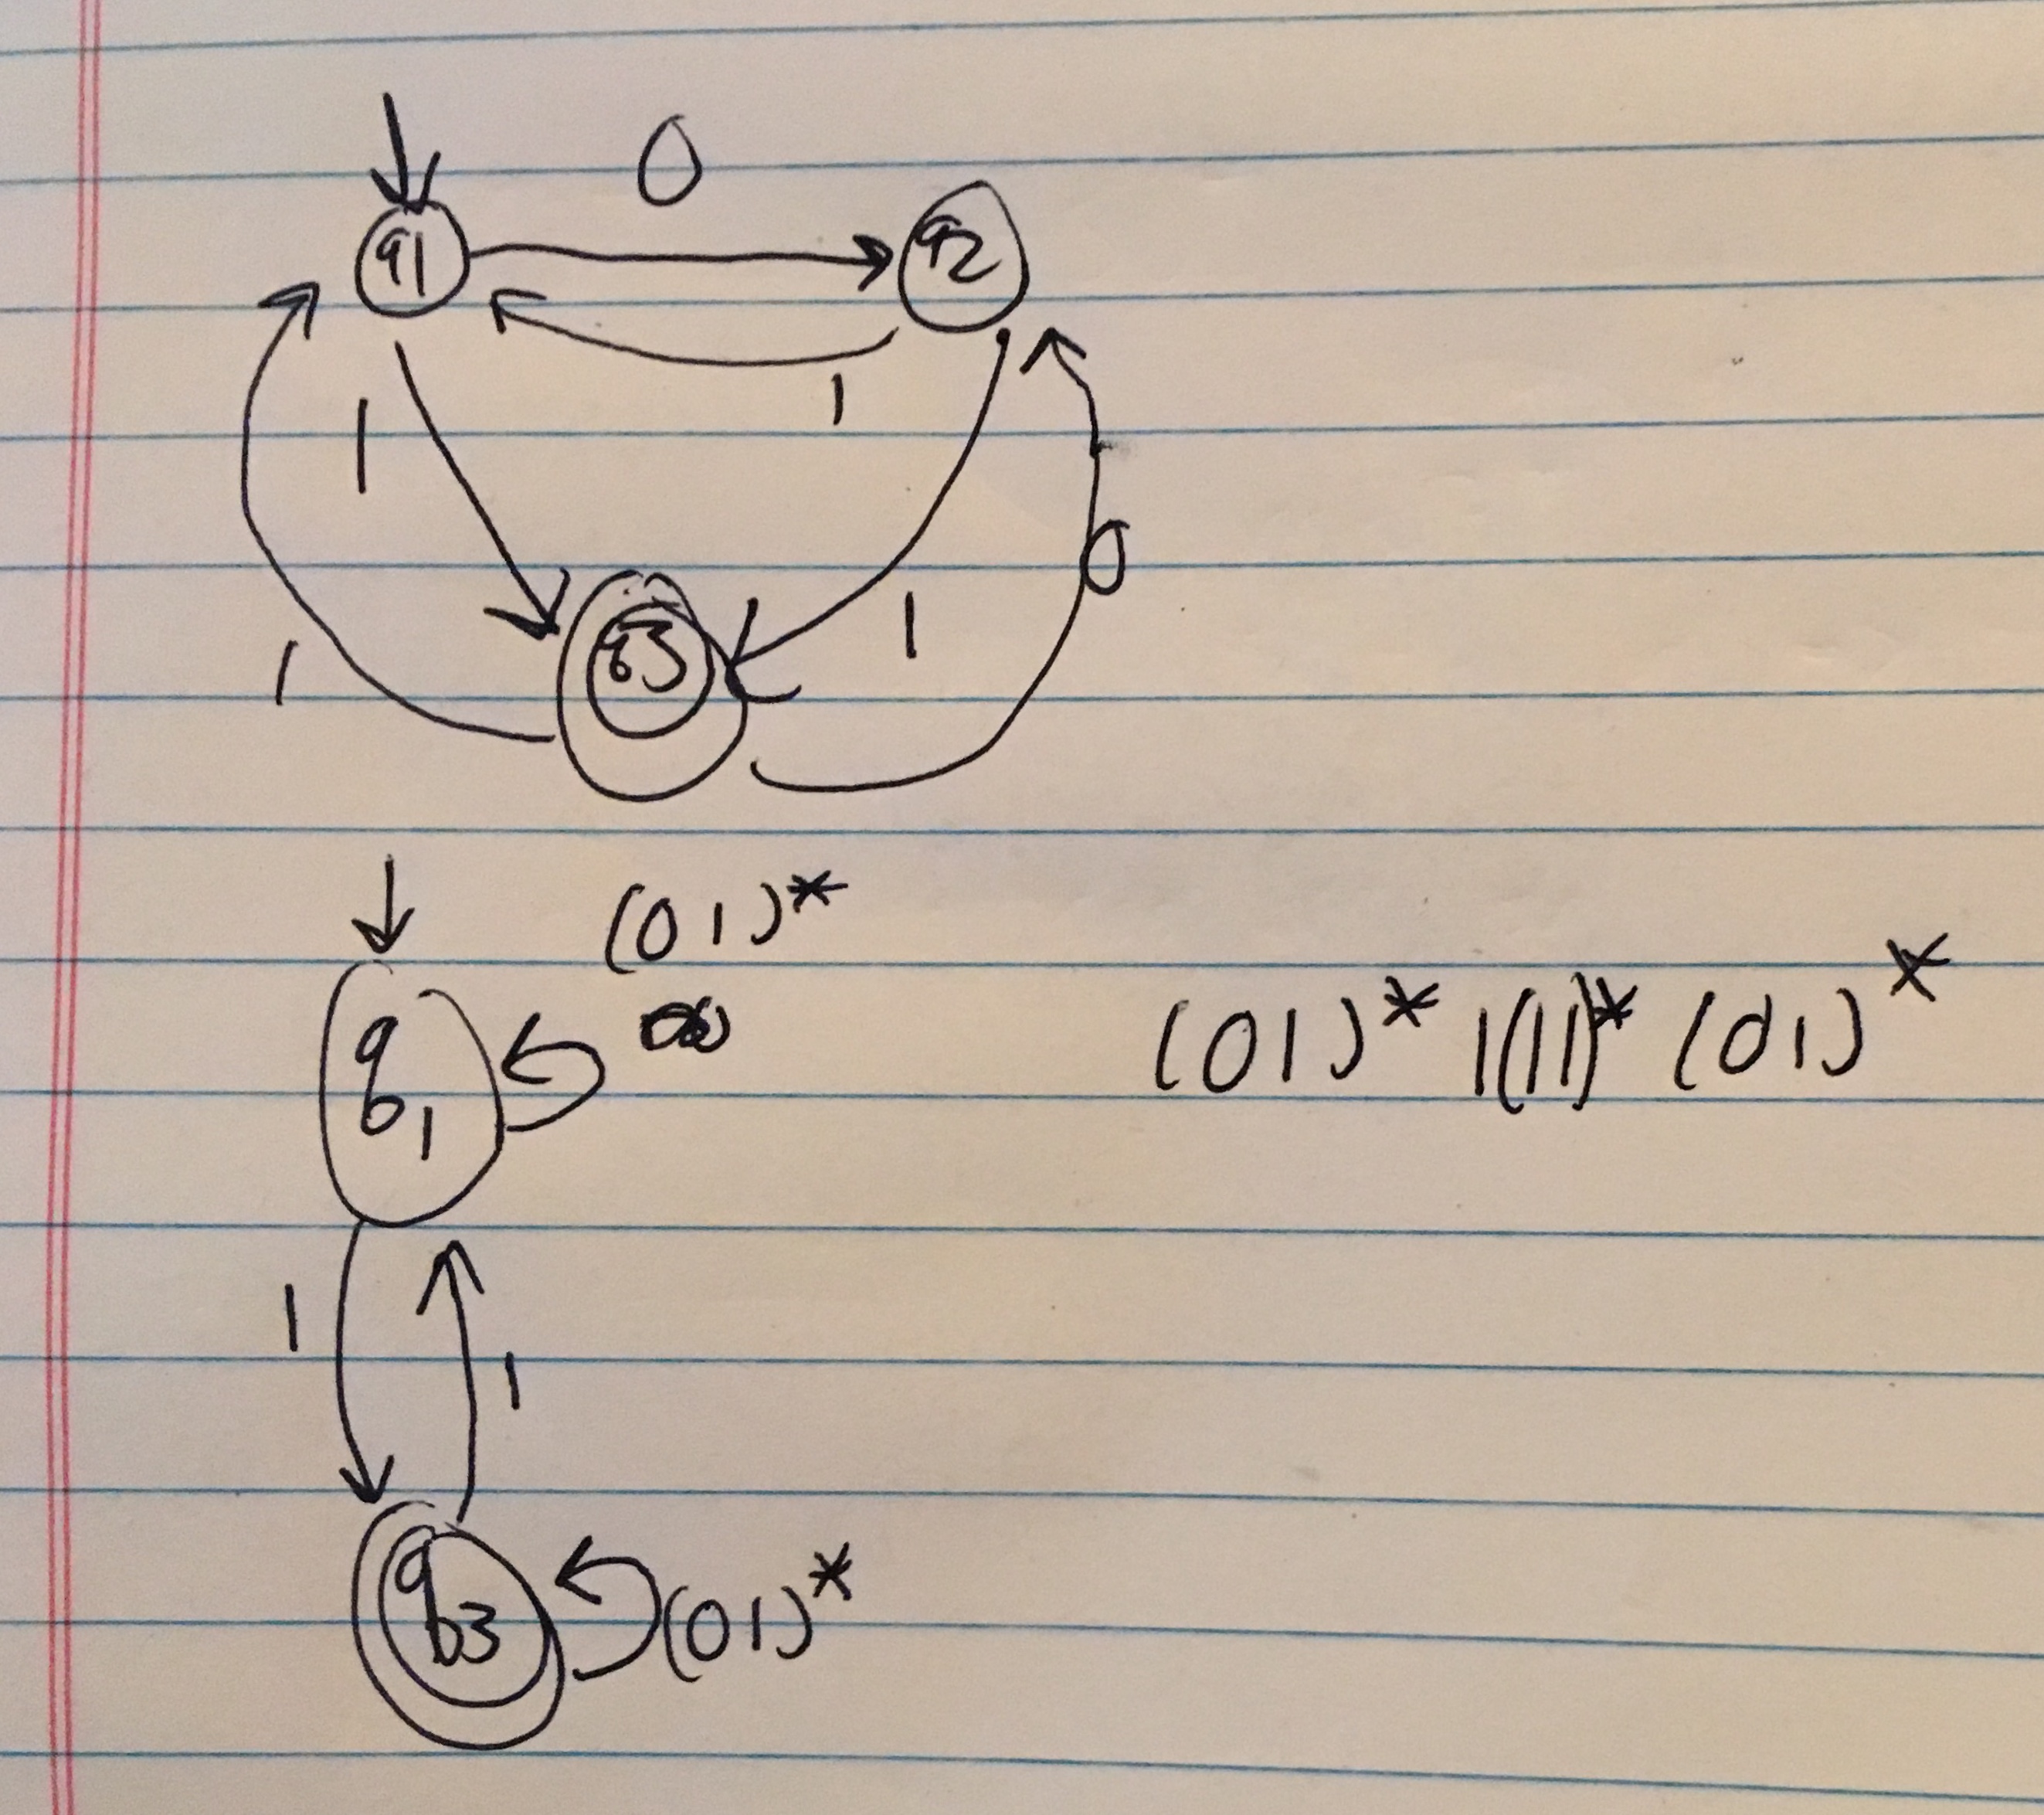 0
q1
q2
1
1
0
1
1
q3
(01)*
q1
(01)* 1(11)* (01)*
1
1
q3
(01)*